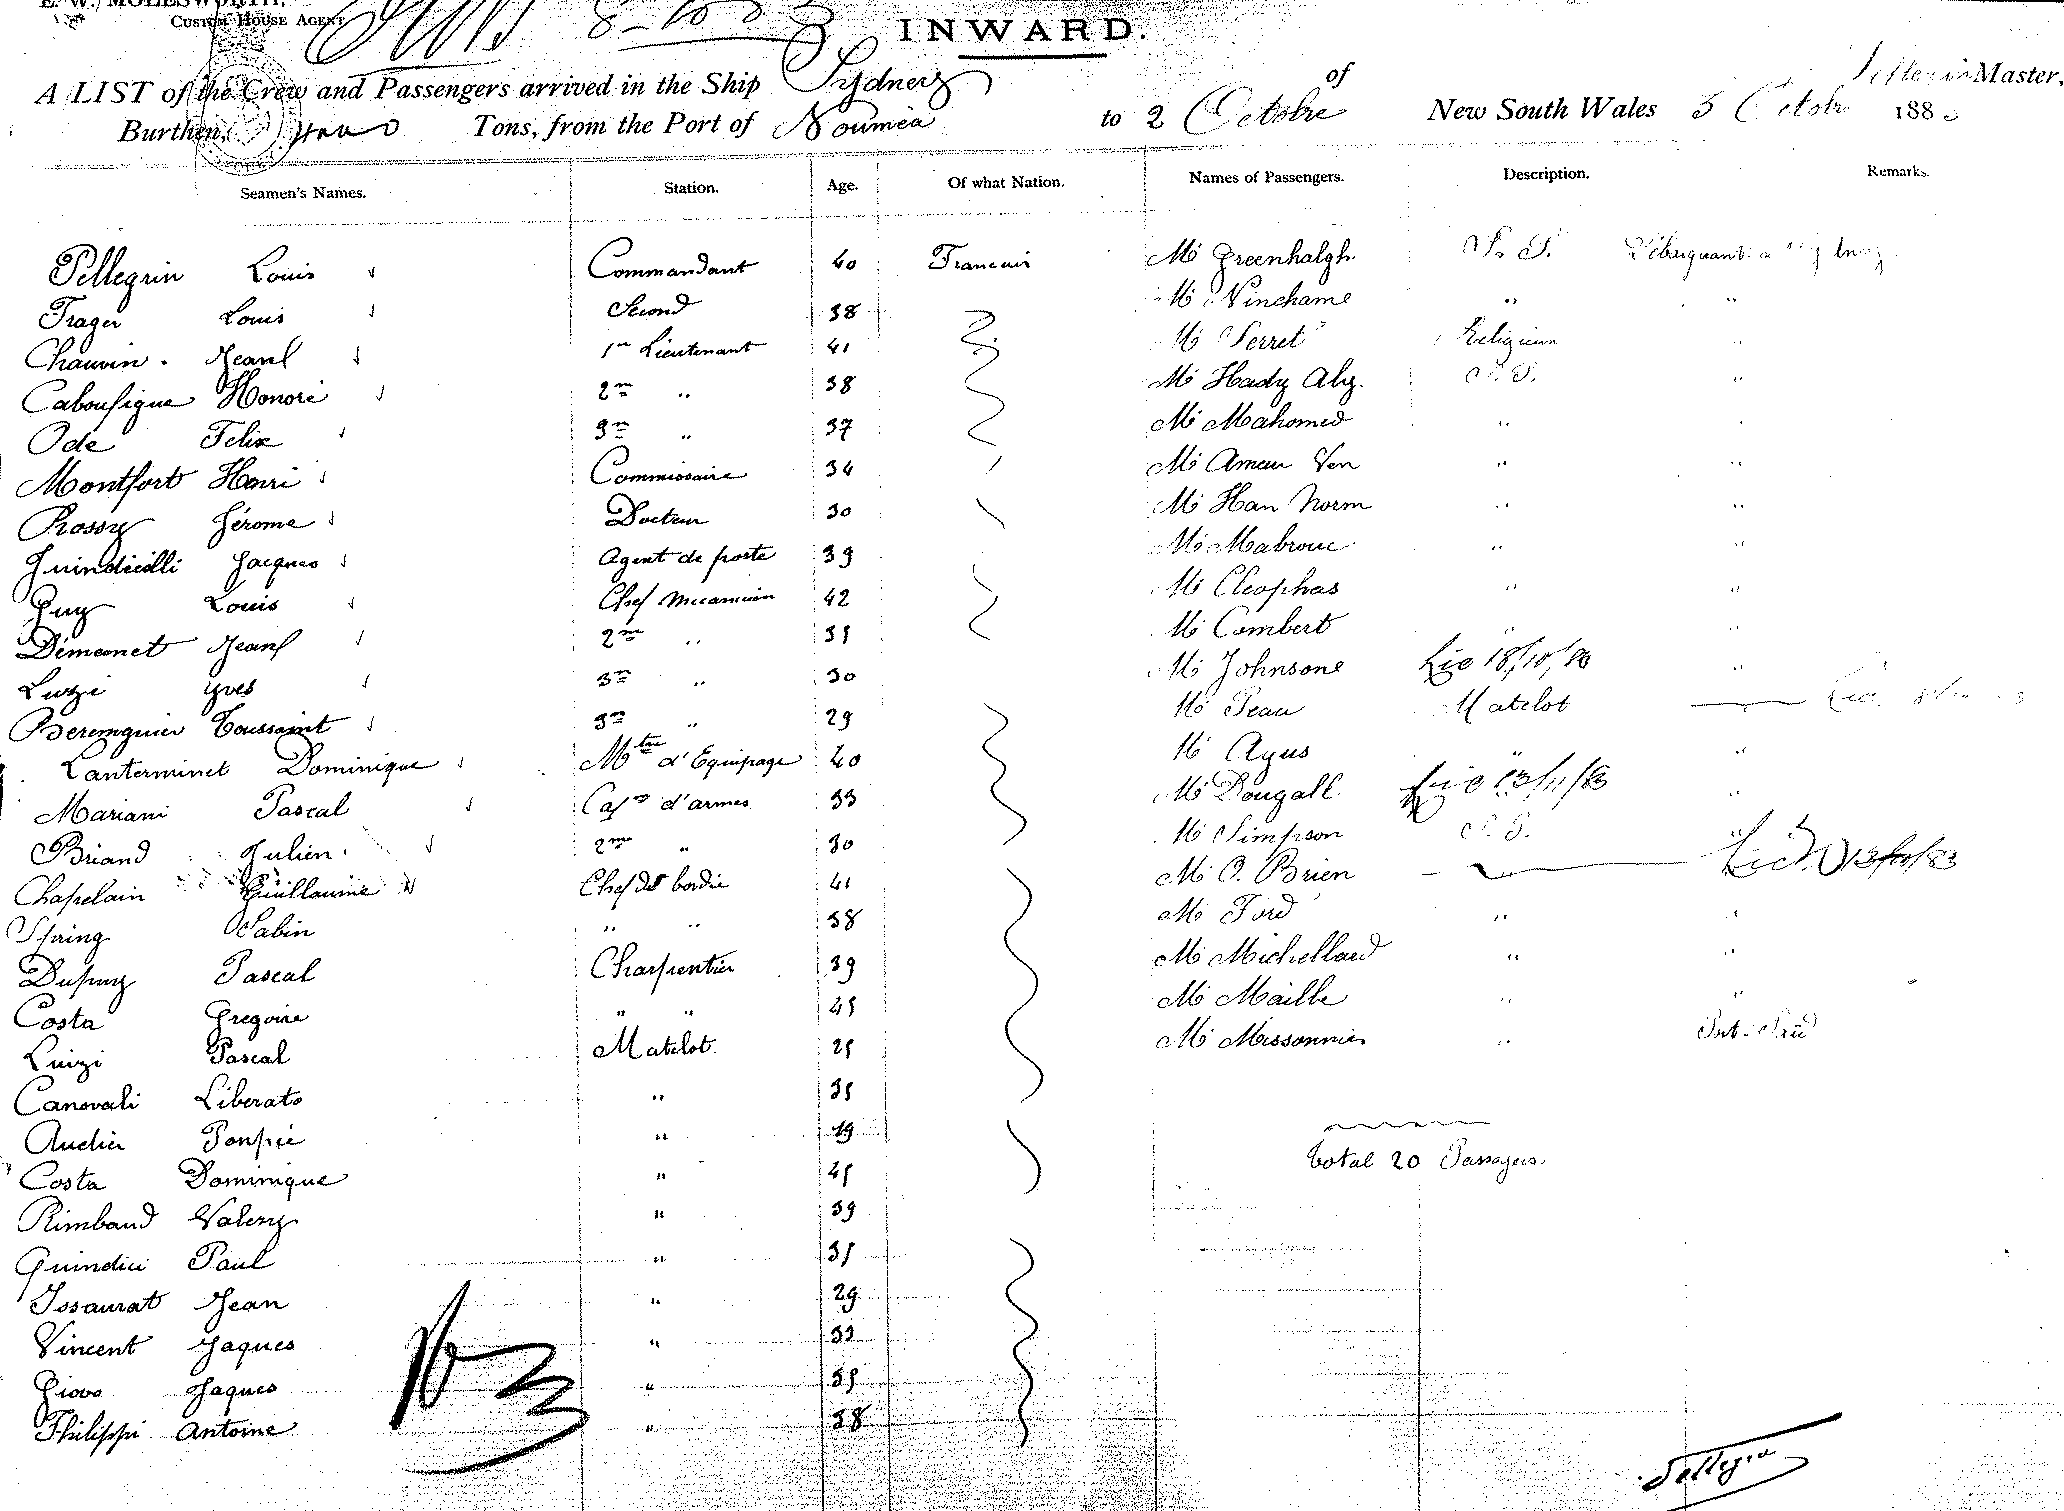 E. W. MOLESWORTH,
CUSTOM HOUSE AGENT
INWARD.
A LIST of the Crew and Passengers arrived in the Ship Sydney of Master,
Burthen Tons, from the Port of Nouméa to 2 Octobre New South Wales 5 Octobre 188
Seamen's Names. Station. Age. Of what Nation. Names of Passengers. Description. Remarks.
Pellegrin Louis Commandant 40 Francais Mr Greenhalgh.
Frager Louis Second 38 Mr Ninchame "
Chauvin. Jean 1er Lieutenant 41 Mr Perret Religieux "
Cabousigue Honoré 2me " 38 Mr Hady Aly. "
Ode Felix 3me " 37 Mr Mahomed " "
Montfort Henri Commissaire 34 Mr Ameau Ven " "
Rossy Jérome Docteur 30 Mr Han Norm " "
Guindicilli Jacques Agent de poste 39 Mr Mabrouc " "
Guy Louis Chef mecanicien 42 Mr Cleophas " "
Démeonet Jean 2me " 35 Mr Combert " "
Luizi Yves 3me " 30 Mr Johnsone Lic 18/10/83 "
Beremguier Toussaint 3me " 29 Mr Peau Matelot
Lanterminet Dominique Mtre d'Equipage 40 Mr Ayus " "
Mariani Pascal Capne d'armes 33 Mr Dougall "
Briand Julien. 2me " 30 Mr Simpson "
Chapelain Guillaume Chef de bordée 41 Mr O. Brien
Spring Sabin " " 38 Mr Ford " "
Dupuy Pascal Charpentier 39 Mr Michellaud " "
Costa Gregoire " " 45 Mr Maille " "
Luizi Pascal Matelot 25 Mr Missonnier "
Canovali Liberato " 35
Audier Ponpée " 19
Total 20 Passagers.
Costa Dominique " 45
Rimbaud Valery " 39
Guindici Paul " 35
Issaurat Jean " 29
Vincent Jaques " 32
Giovo Jaques " 35
Philippi Antoine " 38
Pellegrin